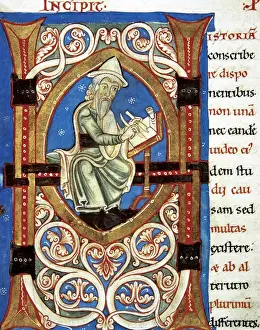 INCIPIT. P
ISTORIA
conscribe
re dispo
nentibus
non unā
nec eandē
uideo ei⁹
dem stu
dij cau
sam sed
multas
existere.
& ab al
terutro
plurimū
differentes.